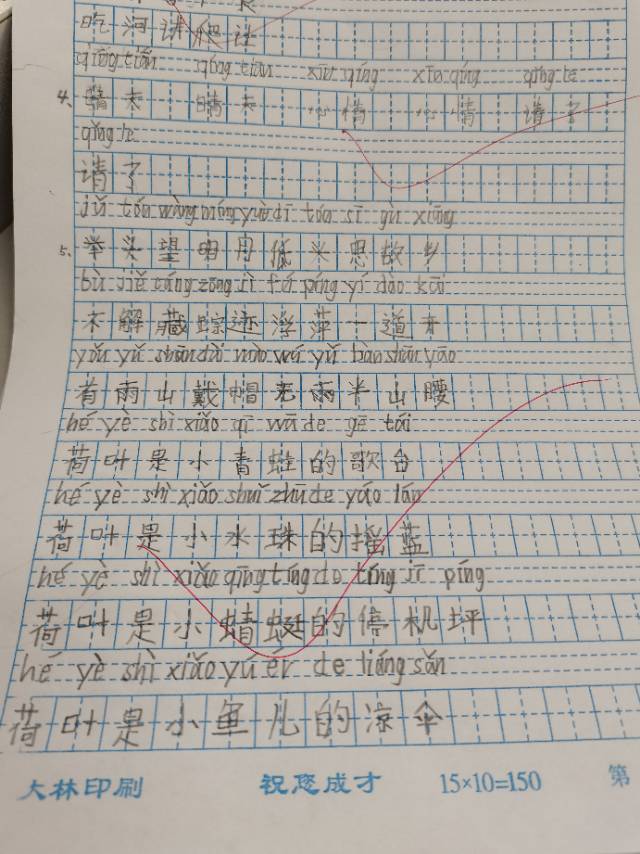 吃河讲爬过
qīng tiān qíng tiān xīn qíng xīn qíng qǐng le
4、晴天 晴天 心情 心情 请了
qǐng le
请了
jǔ tóu wàng míng yuè dī tóu sī gù xiāng
5、举头望明月低头思故乡
bù jiě cáng zōng jì fú píng yí dào kāi
不解藏踪迹浮萍一道开
yǒu yǔ shān dài mào wú yǔ bàn shān yāo
有雨山戴帽无雨半山腰
hé yè shì xiǎo qī wā de gē tái
荷叶是小青蛙的歌台
hé yè shì xiǎo shuǐ zhū de yáo lán
荷叶是小水珠的摇蓝
hé yè shì xiǎo qīng tíng de tíng jī píng
荷叶是小蜻蜓的停机坪
hé yè shì xiǎo yú ér de liáng sǎn
荷叶是小鱼儿的凉伞
大林印刷 祝您成才 15×10=150 第